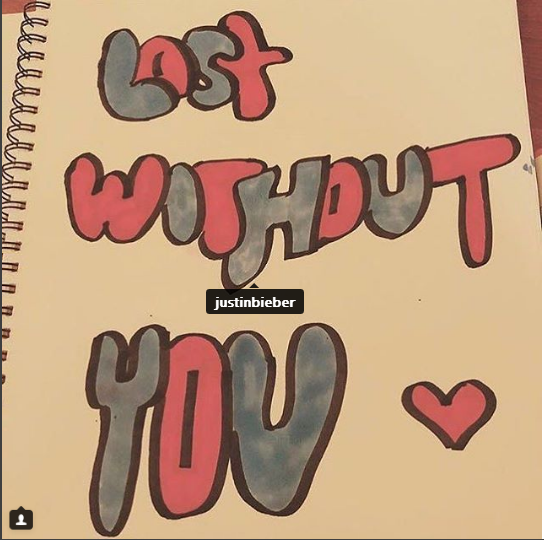 LOST
WITHOUT
justinbieber
YOU